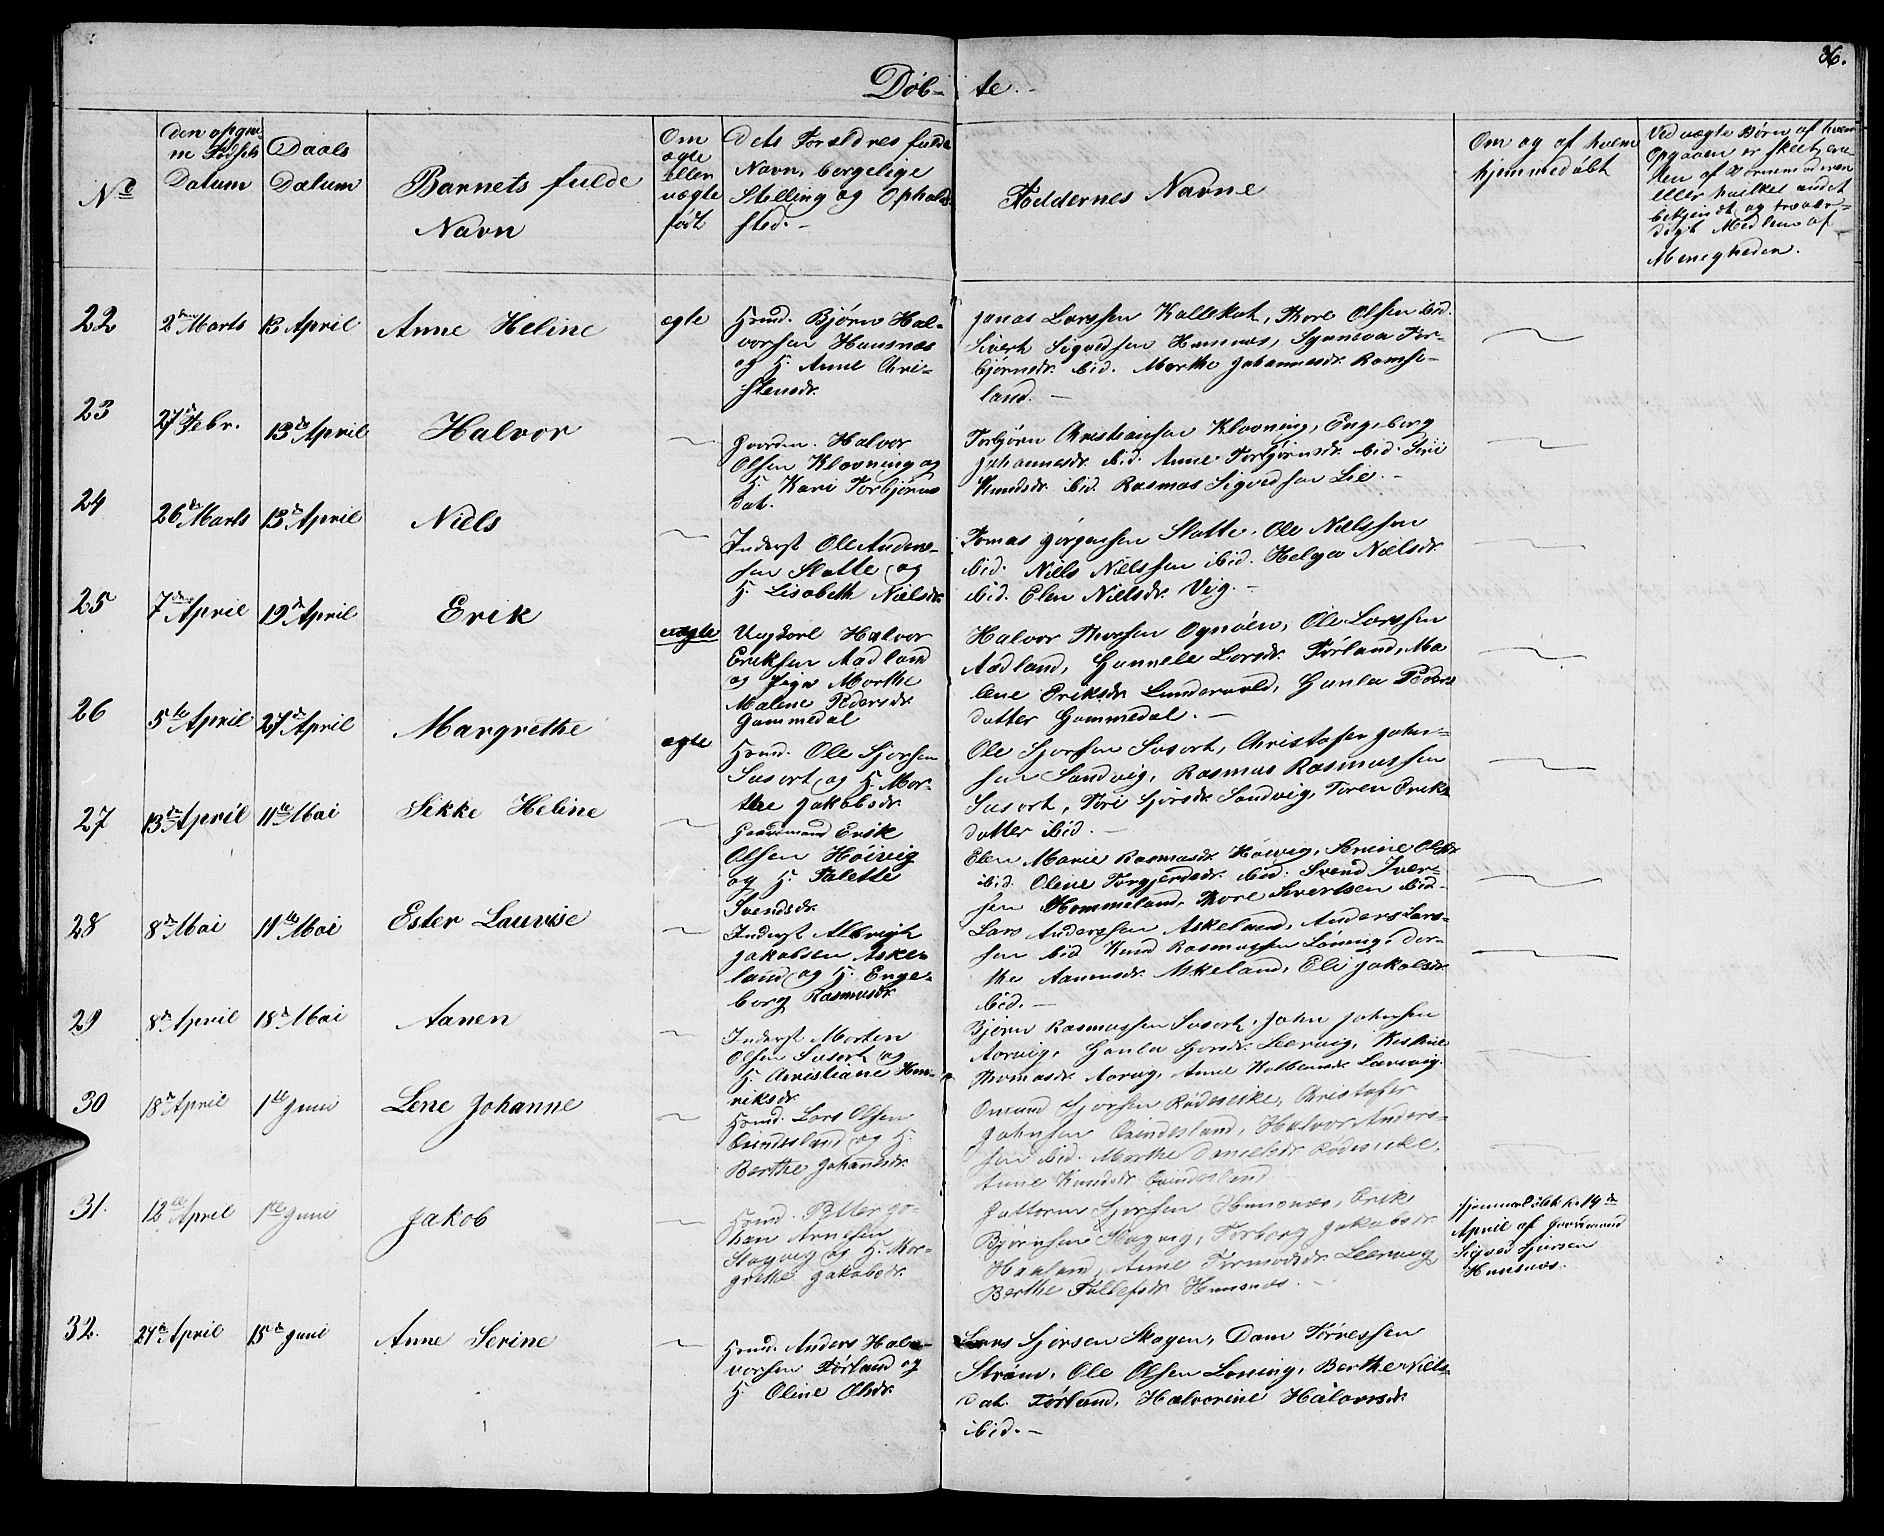 36.
Døb- te.
No
den opgiv-
ne Fødsels
Datum
Daabs
Datum
Barnets fulde
Navn
Om
ægte
eller
uægte
født
Dets Forældres fulde
Navn, borgelige
Stelling og Opholds
sted.
Faddernes Navne
Om og af hvem
hjemmedøbt
Ved uægte Børn af hvem
Opgaven er skeet,
den af
eller hvilket andet
bekjendt og trovær-
digt Medlem af
Menigheden.
22
2den Marts
13 April
Anne Heline
ægte
Hmd. Bjørn Hal-
vorsen Hunsnæs
og H. Anne Chri-
stensdr.
Jonas Larssen Kallekot, Thore Olsen ibid.
Sivert Sigvedsen Hunsnæs, Synneva Tor-
bjørnsdr. ibid. Marthe Johannesdr. Ramse-
land.
23
27de Febr.
13de April
Halvor
Halvor
Olsen Klovning og
H. Kari Torbjørns
dat.
Torbjørn Christiansen Klovning, Engeborg
Johannesdr. ibid. Anne Torbjørnsdr. ibid. Siri
Knudsdr. ibid. Rasmus Sigvedsen Lie.
24
26de Marts
13de April
Niels
Inderst Ole Anders-
sen Slatte og
H. Lisabeth Nielsdr.
Tomas Jørgensen Slatte, Ole Nielssen
ibid. Niels Nielssen ibid. Helga Nielsdr.
ibid. Elen Nielsdr. Vig.
25
7de April
19de April
Erik
uægte
Ungkarl Halvor
Eriksen Aadland
og Pige Marthe
Malene Pedersdr.
Gammedal
Halvor Thorsen Ognøen, Ole Larssen
Aadland, Gunnele Larsdr. Førland, Ma
lene Eriksdr. Lundervold, Gunla Peders
datter Gammedal.
26
5te April
27de April
Margrethe
ægte
Hmd. Ole Sjorsen
Susort og H. Mar-
the Jakobsdr.
Ole Sjorsen Susort, Christofer John-
sen Sandvig, Rasmus Rasmussen
Susort, Tori Sjorsdr. Sandvig, Toren Eriks
datter ibid.
27
13de April
11te Mai
Sikke Heline
Gaardmand Erik
Olsen Høivig
og H. Talette
Svendsdr.
Elen Marie Rasmusdr. Høivig, Serine Olsdr.
ibid. Oline Torgjerdsdr. ibid. Svend Iver-
sen Hommeland, Thore Sivertsen ibid.
28
8de Mai
11te Mai
Ester Lauvise
Inderst Albrigt
Jakobsen Aske-
land og H. Enge-
borg Rasmusdr.
Lars Anderssen Askeland, Anders Lars-
sen ibid. Knud Rasmussen Løning, Dor-
the Aanensdr. Askeland, Eli Jakobsdr.
ibid.
29
8de April
18de Mai
Aanen
Inderst Morten
Olsen Susort og
H. Christiane Hen-
riksdr.
Bjørn Rasmussen Susort, John Johnsen
Aarvig, Gunla Sjorsdr. Leervig, Kistine
Thomasdr. Aarvig, Anne Kolbensdr. Leervig.
30
18de April
1ste Juni
Lene Johanne
Hmd. Lars Olsen
Qvindesland og H.
Berthe Johansdr.
Omund Sjorsen Rødeseike, Christofer
Johnsen Qvindesland, Halvor Anders-
sen ibid. Marthe Danielsdr. Rødeseike,
Anne Knudsdr. Qvindesland.
31.
12te April
1ste Juni
Jakob
Hmd. Petter Jo-
han Arnesen
Stagvig og H. Mar-
grethe Jakobsdr.
Guttorm Sjorsen Hunsnæs, Erik
Bjørnsen Stagvig, Torborg Jakobsdr.
Haaland, Anne Tormodsdr. Leervig
Berthe Tollefsdr. Hunsnæs.
Hjemmedøbt d. 14de
April af Gaardmand
Sigved Sjursen
Hunsnæs.
32.
27de April
15de Juni
Anne Serine
Hmd. Anders Hal-
vorsen Førland og
H. Oline Olsdr.
Lars Sjorsen Skogen, Dam Tørressen
Strøm, Ole Olsen Loning, Berthe Niels-
dat. Førland, Halvorine Halvorsdr.
ibid.